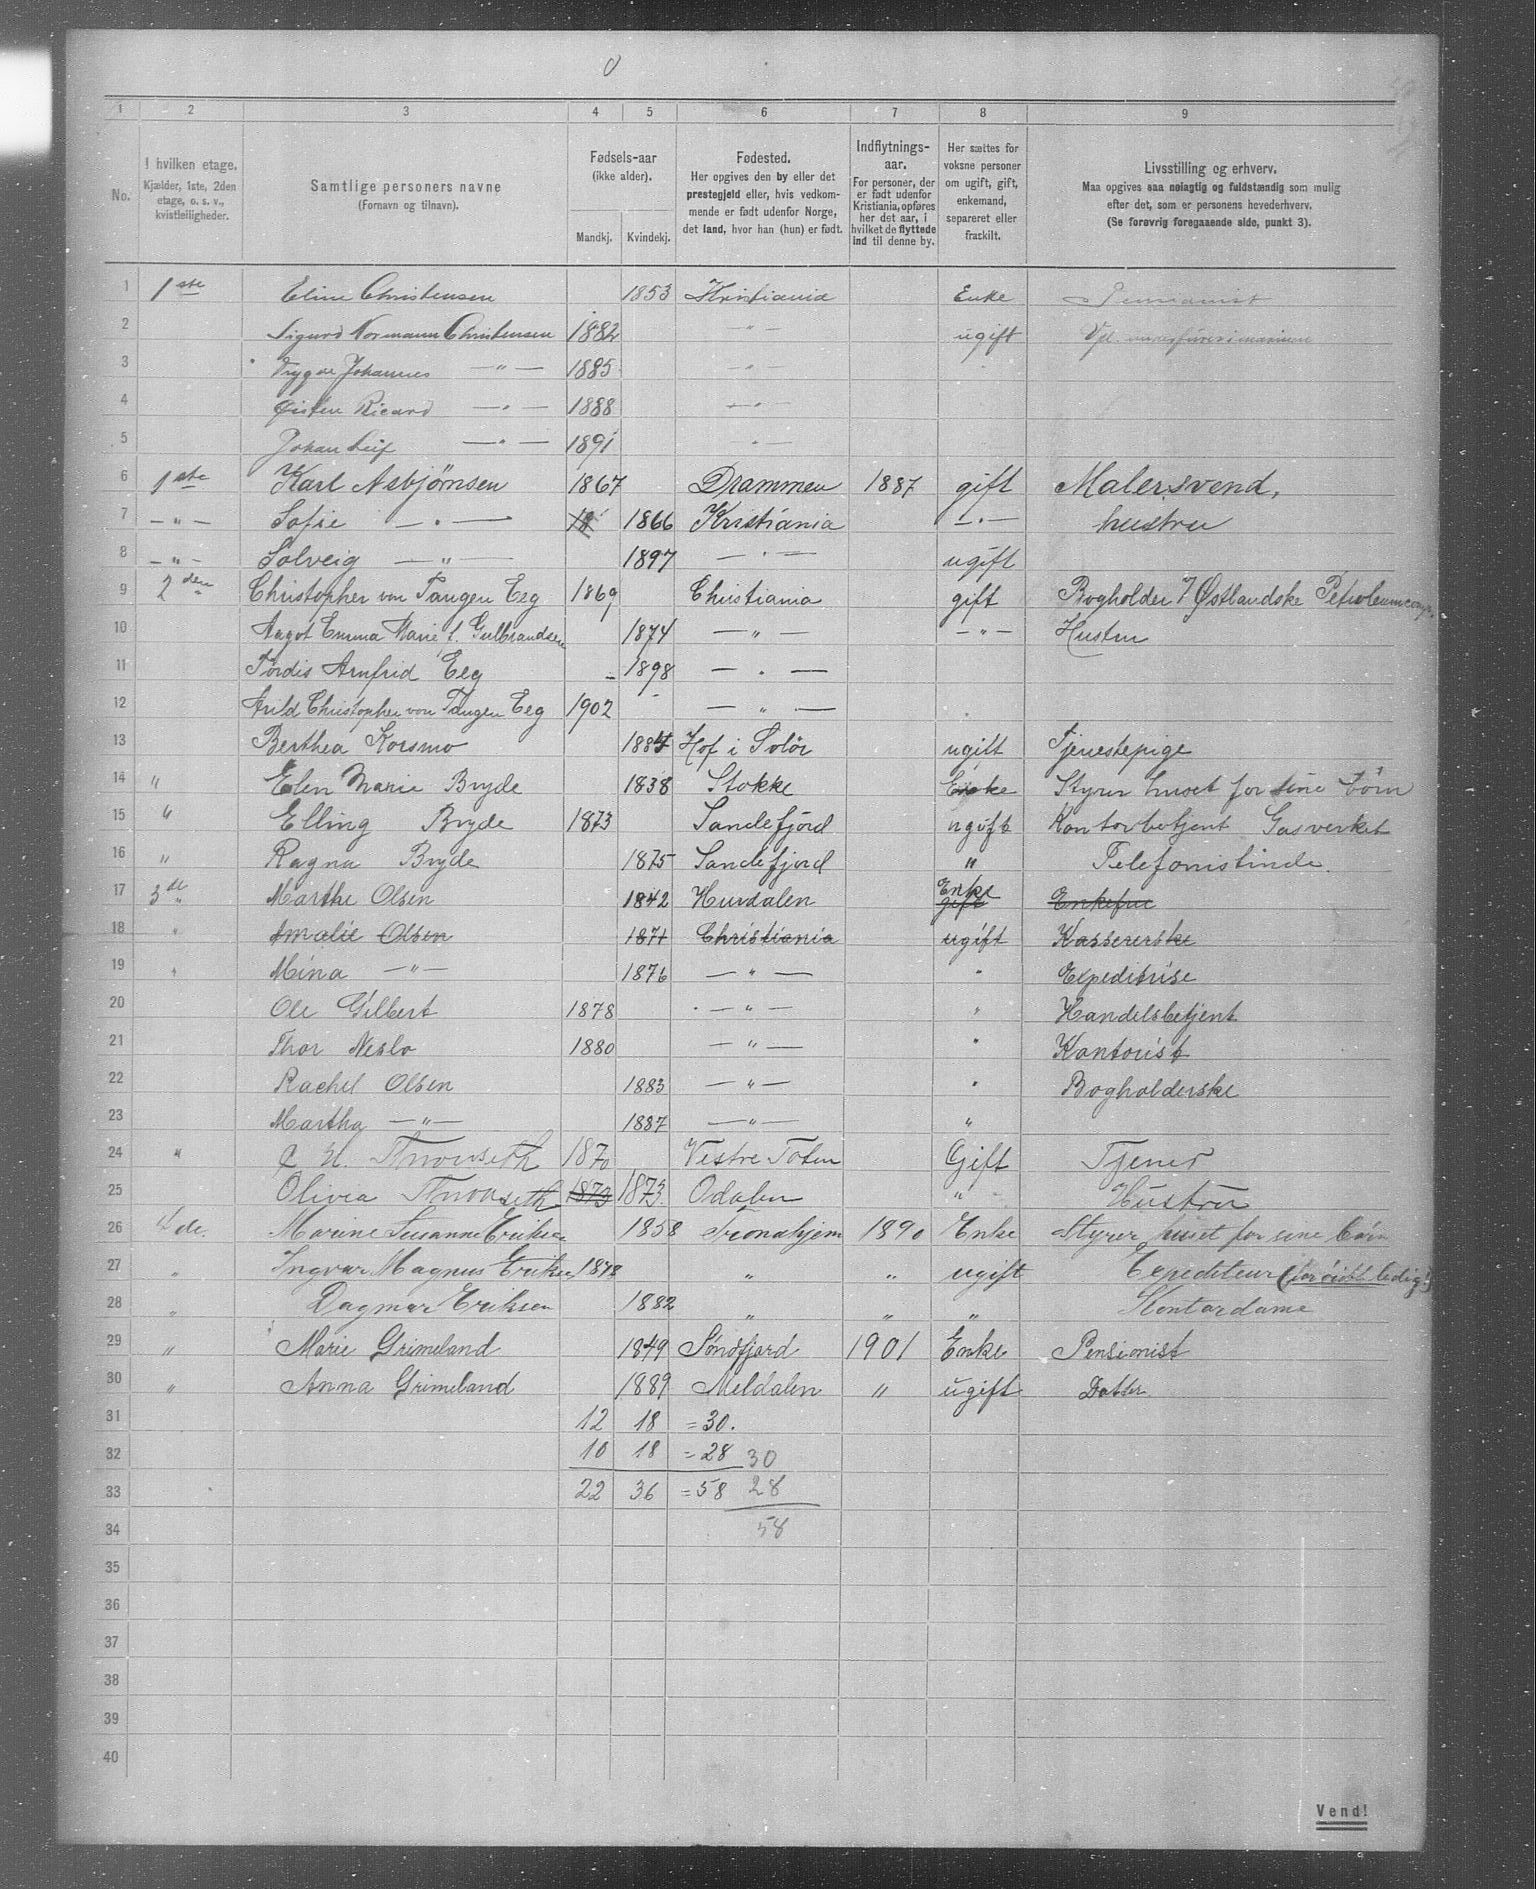 1 2 3 4 5 6 7 8 9
No.
I hvilken etage.
Kjælder, 1ste, 2den
etage, o. s. v.,
kvistleiligheder.
Samtlige personers navne
(Fornavn og tilnavn).
Fødsels-aar
(ikke alder).
Mandkj. Kvindekj.
Fødested.
Her opgives den by eller det
prestegjeld eller, hvis vedkom-
mende er født udenfor Norge,
det land, hvor han (hun) er født.
Indflytnings-
aar.
For personer, der
er født udenfor
Kristiania, opføres
her det aar, i
hvilket de flyttede
ind til denne by.
Her sættes for
voksne personer
om ugift, gift,
enkemand,
separeret eller
fraskilt.
Livsstilling og erhverv.
Maa opgives saa nøiagtig og fuldstændig som mulig
efter det, som er personens hovederhverv.
(Se forøvrig foregaaende side, punkt 3).
1 1ste Eline Christensen 1853 Kristiania Enke Pensionist
2 Sigurd Normann Christensen 1882 — " — ugift
3 Trygve Johannes — " — 1885 — " —
4 Øisten Ricard — " — 1888 — " —
5 Johan Leif — " — 1891 — " —
6 1ste Karl Asbjørnsen 1867 Drammen 1887 gift Malersvend,
7 — " — Sofie — " — 18 1866 Kristiania — " — hustru
8 — " — Solveig — " — 1897 — " — ugift
9 2den Christopher von Tangen Eeg 1869 Christiania gift Bogholder i Østlandske Petroleumcomp.
10 Aagot Emma Marie f. Gulbrandsen 1874 — " — — " — Hustru
11 Tordis Arnfrid Eeg 1898 — " —
12 Arild Christopher von Tangen Eeg 1902 — " —
13 Berthea Korsmo 1884 Hof i Solør ugift Tjenestepige
14 " Elen Marie Bryde 1838 Stokke Enke Styrer huset for sine børn
15 " Elling Bryde 1873 Sandefjord ugift Kontorbetjent Gasverket
16 " Ragna Bryde 1875 Sandefjord " Telefonistinde.
17 3de " Marthe Olsen 1842 Hurdalen Enke gift Enkefrue
18 " Amalie Olsen 1871 Christiania ugift Kassererske
19 " Mina — " — 1876 — " — " Expeditrise
20 Ole Gilbert 1878 — " — " Handelsbetjent
21 Thor Neslo 1880 — " — " Kontorist
22 Rachel Olsen 1883 — " — " Bogholderske
23 Martha — " — 1887 — " — "
24 " 1870 Vestre Toten Gift Tjener
25 Olivia 1873 1873. Odalen " Hustru
26 4de. Marine Susanne Eriksen 1858 Trondhjem 1890 Enke Styrer huset for sine børn
27 " Ingvar Magnus Eriksen 1878 " " ugift Expediteur (for øieblk ledig)
28 " Dagmar Eriksen 1882 " " " Kontordame
29 " Marie Grimeland 1849 Søndfjord 1901 Enke Pensionist
30 " Anna Grimeland 1889 Meldalen " ugift Datter.
31 12 18 = 30.
32 10 18 = 28 30
33 22 36 = 58 28
34 58
35
36
37
38
39
40
Vend!